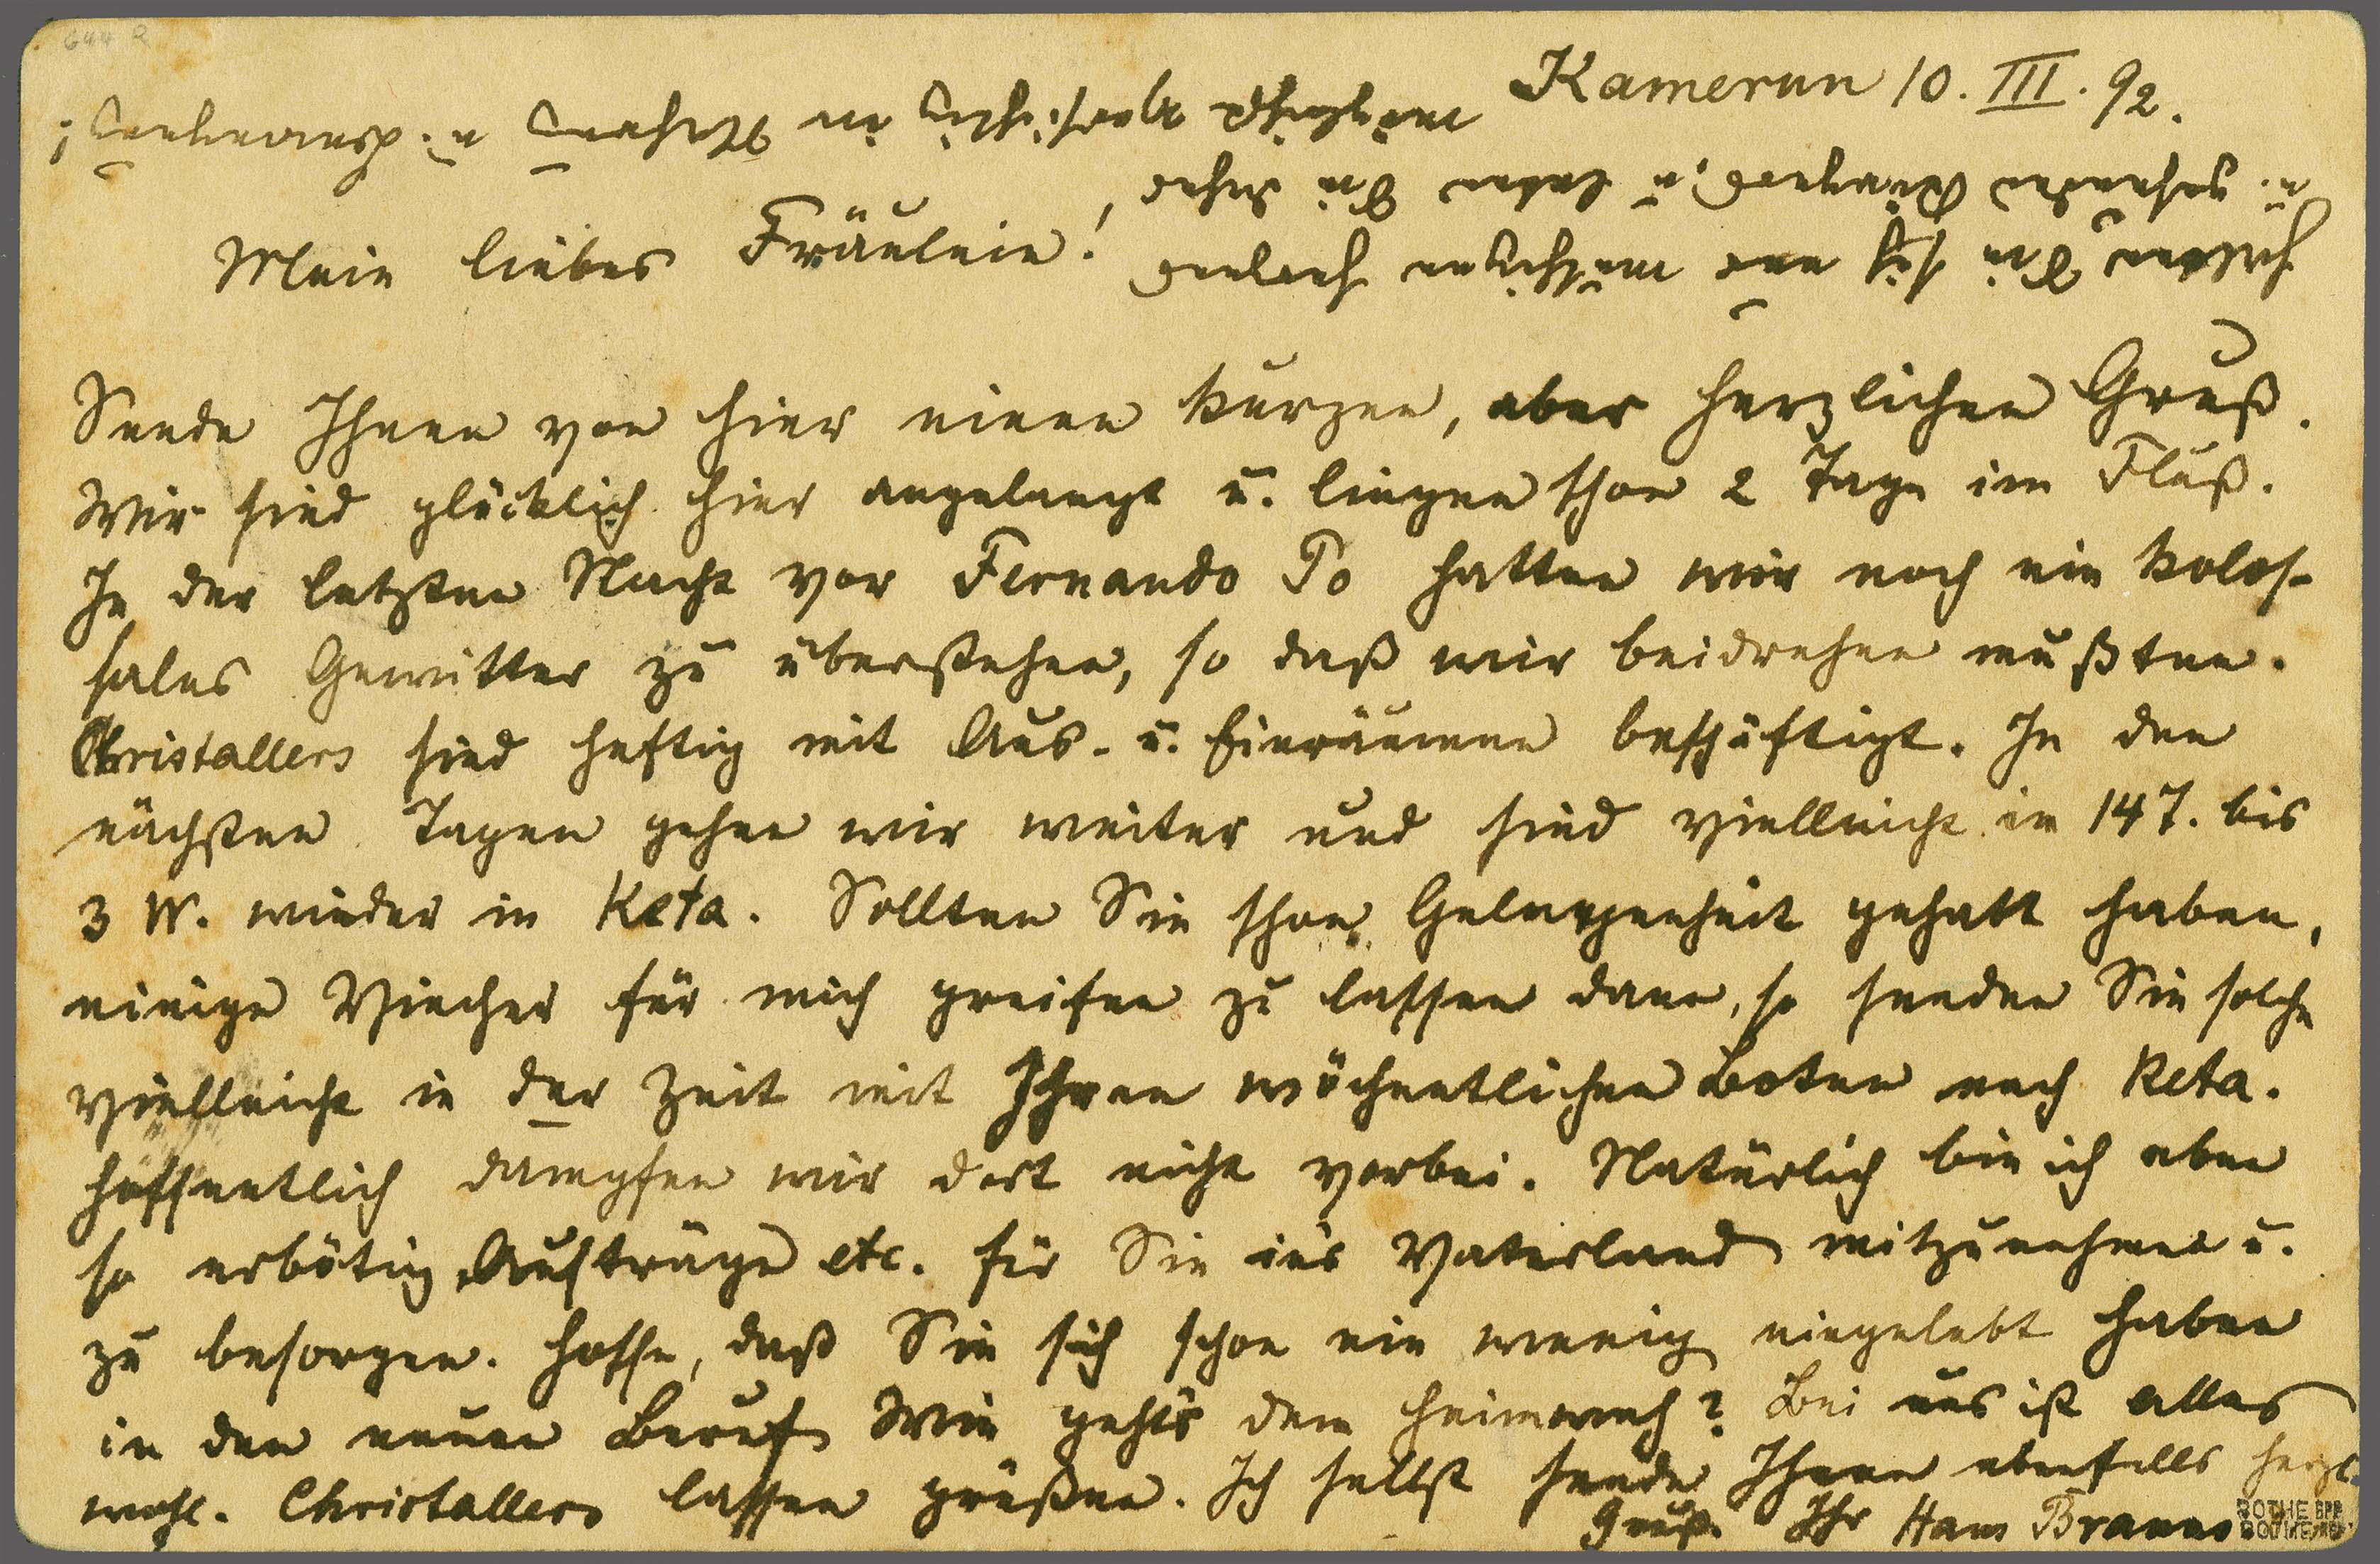 Kamerun 10. III. 92.
Mein liebes Fräulein!
Sende Ihnen von hier einen kurzen, aber herzlichen Gruß.
Wir sind glücklich hier angelangt u. liegen schon 2 Tage im Fluß.
In der letzten Nacht vor Fernando Po hatten wir noch ein kolos-
sales Gewitter zu überstehen, so daß wir beidrehen mußten.
Christallers sind heftig mit Aus- u. Einräumen beschäftigt. In den
nächsten Tagen gehen wir weiter und sind vielleicht in 14 T. bis
3 W. wieder in Keta. Sollten Sie schon Gelegenheit gehabt haben,
einige Viecher für mich greifen zu lassen dann, so senden Sie solche
vielleicht in der Zeit mit Ihren wöchentlichen Boten nach Keta.
Hoffentlich dampfen wir dort nicht vorbei. Natürlich bin ich eben
so erbötig, Aufträge etc. für Sie ins Vaterland mitzunehmen u.
zu besorgen. Hoffe, daß Sie sich schon ein wenig eingelebt haben
in den neuen Beruf. Wie gehts dem Heimweh? Bei uns ist alles
wohl. Christallers lassen grüßen. Ich selbst sende Ihnen ebenfalls herzl.
Gruß. Ihr Hans
Halten Sie sich nur
u. gesunden u. leben Sie
möglichst vorsichtig in
BOTHE BPP
BOTHE BPP